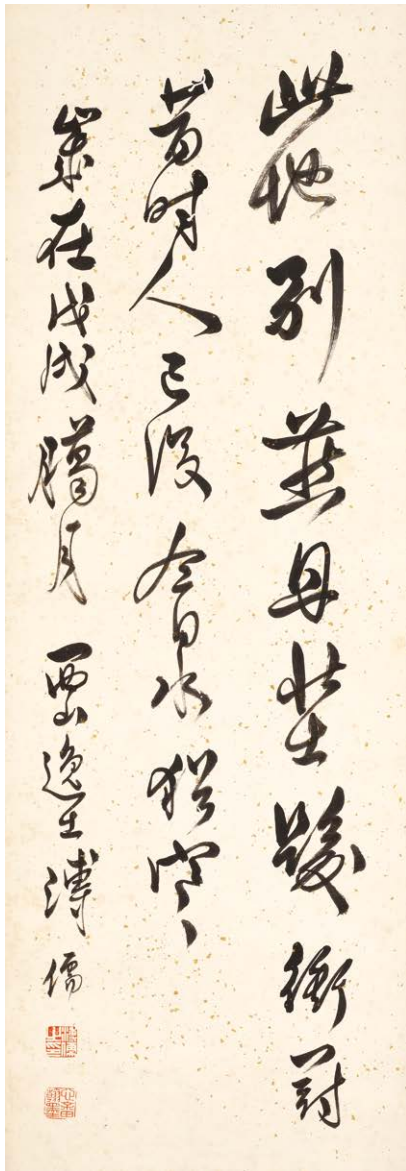 此地別燕丹壯士髮衝冠
昔時人已沒今日水猶寒
歲在戊戌臘月 西山逸士溥儒